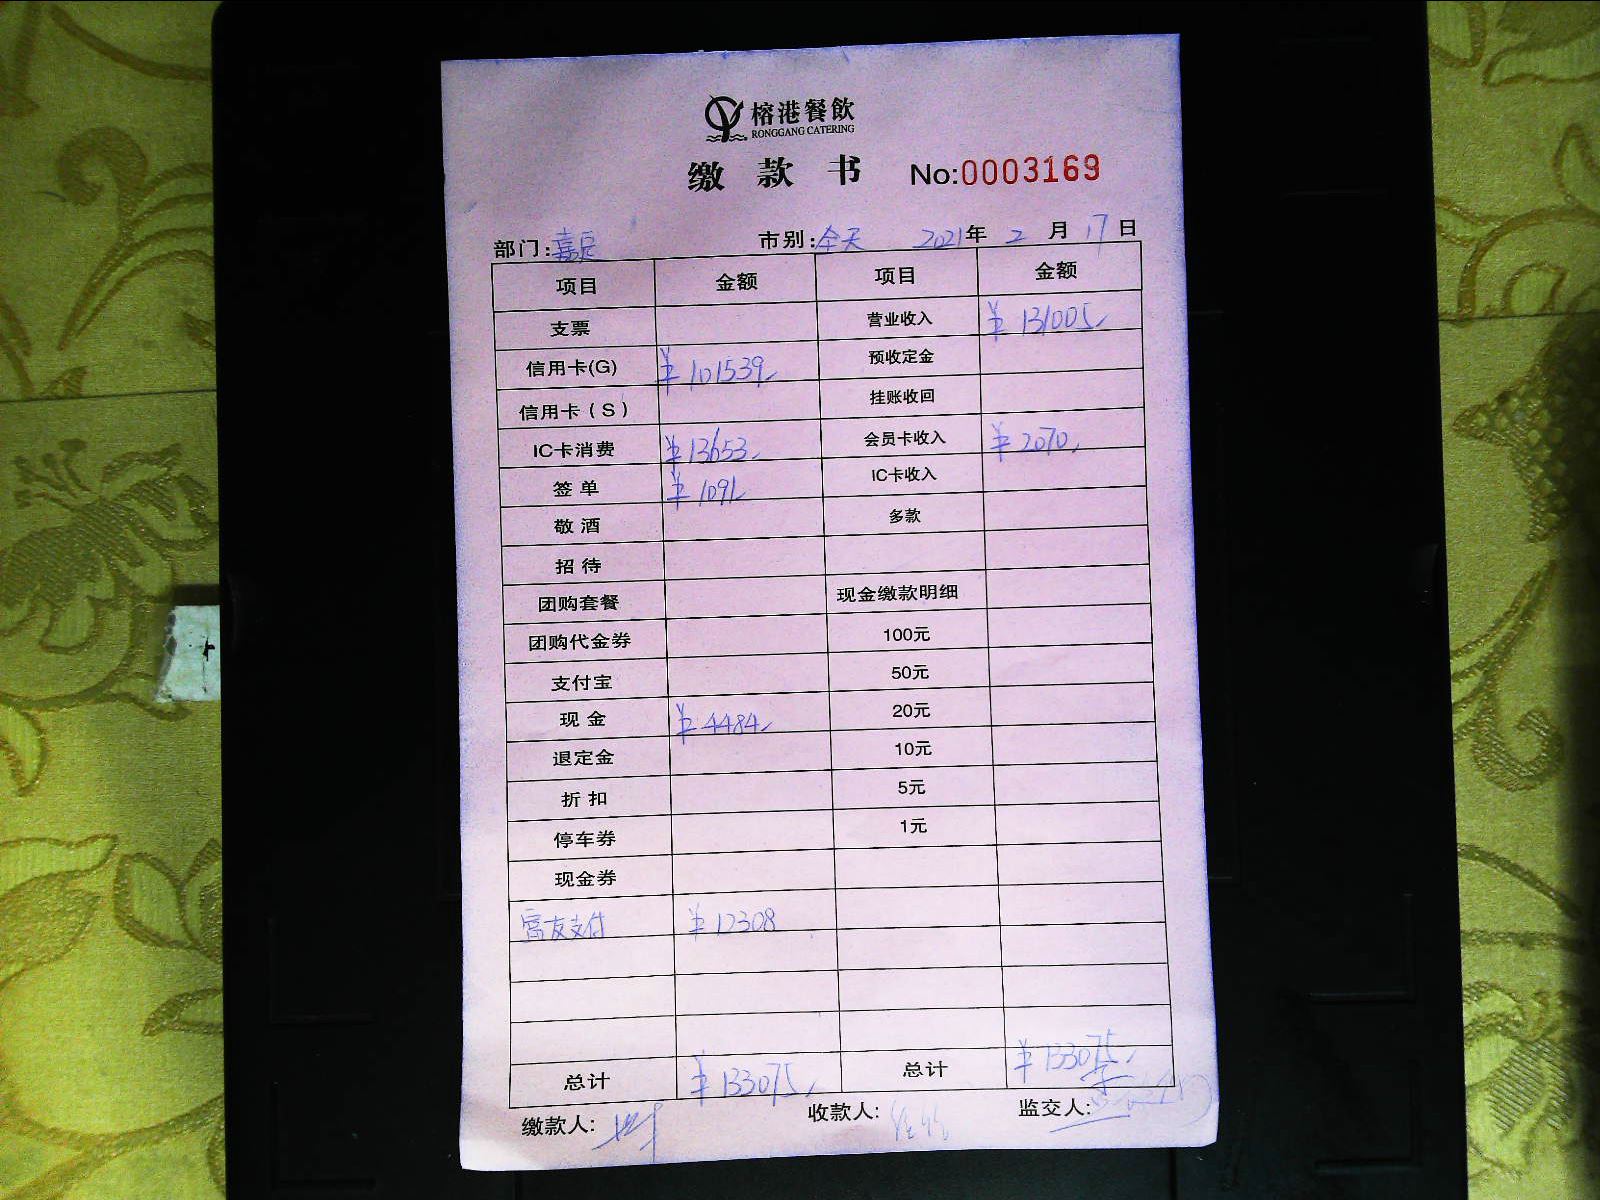 榕港餐飲
RONGGANG CATERING
缴款书 No:0003169
部门:嘉辰 市别:全天 2021年 2月 17日
项目 金额 项目 金额
支票 营业收入 ¥131005
信用卡(G) ¥101539 预收定金
信用卡(S) 挂账收回
IC卡消费 ¥13653 会员卡收入 ¥2070
签单 ¥1091 IC卡收入
敬酒 多款
招待
团购套餐 现金缴款明细
团购代金券 100元
支付宝 50元
现金 ¥4484 20元
退定金 10元
折扣 5元
停车券 1元
现金券
富友支付 ¥12308
总计 ¥133075 总计 ¥133075
缴款人: 收款人: 监交人: